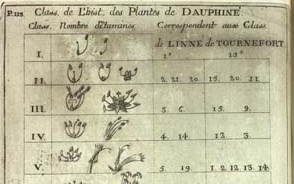 P. 113. Class. de L'hist. des Plantes de DAUPHINÉ.
Class. Nombre d'étamines. Correspondent aux Class.
de LINNE de TOURNEFORT
I. 1. 15.
II. 2. 21. 20. 15. 20. 21.
III. 3. 6. 15. 9.
IV. 4. 14. 12. 3.
V. 5. 19. 1. 2. 12. 13. 14.